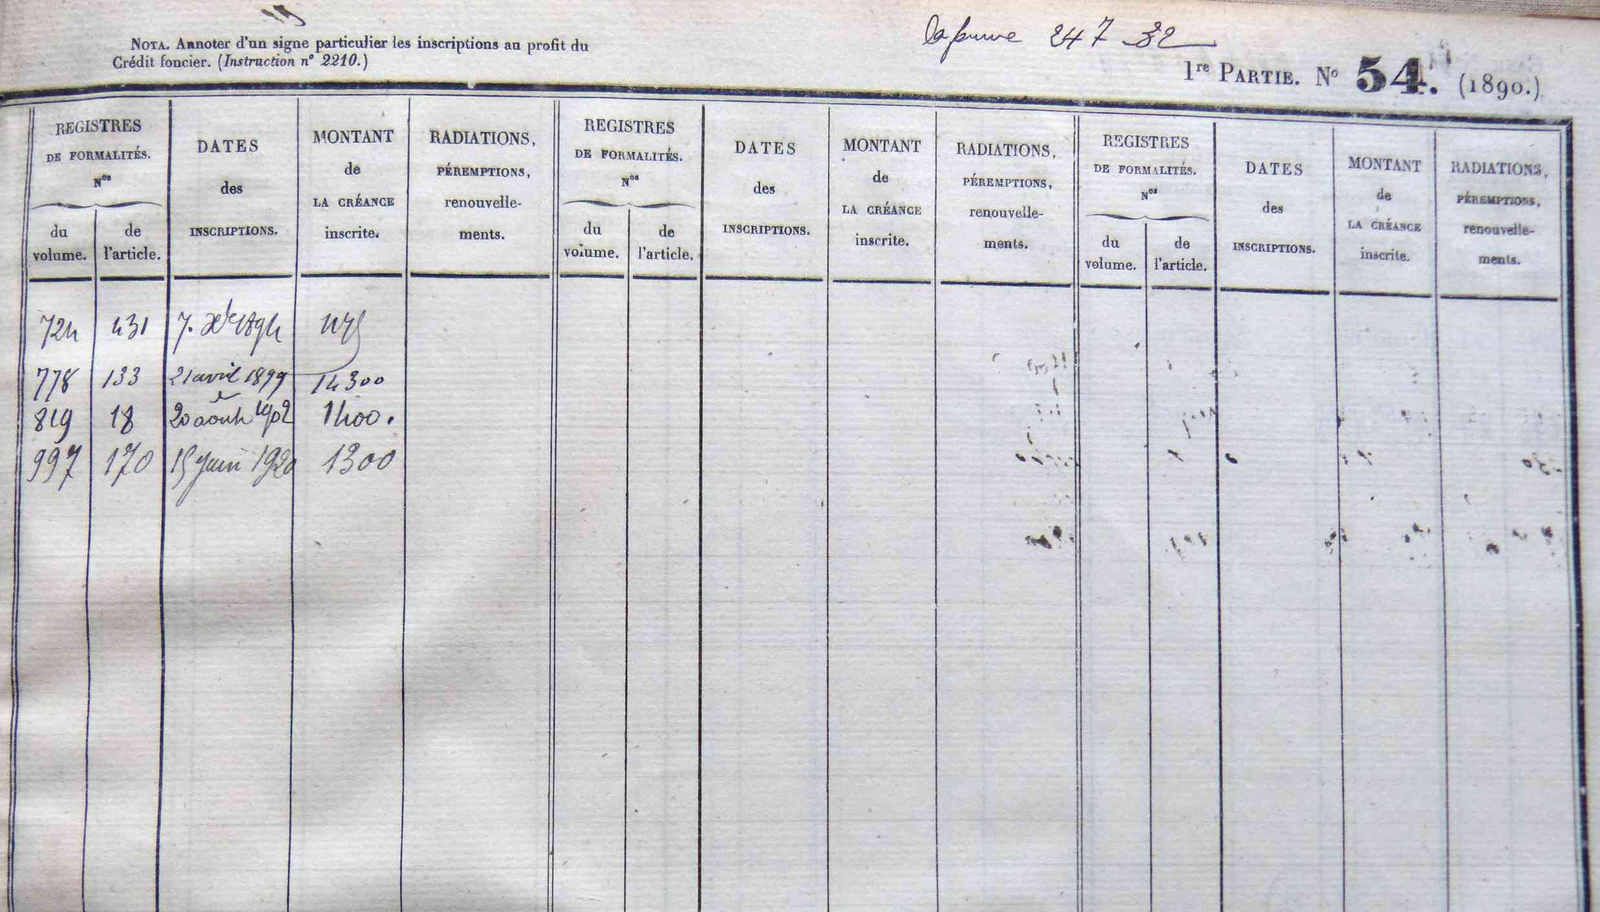 NOTA. Annoter d'un signe particulier les inscriptions au profit du
Crédit foncier. (Instruction n° 2210.)
247 32
1re PARTIE. N° 54. (1890.)
REGISTRES
DE FORMALITÉS.
Nos
du
volume.
de
l'article.
DATES
des
INSCRIPTIONS.
MONTANT
de
LA CRÉANCE
inscrite.
RADIATIONS,
PÉREMPTIONS,
renouvelle-
ments.
REGISTRES
DE FORMALITÉS.
Nos
du
volume.
de
l'article.
DATES
des
INSCRIPTIONS.
MONTANT
de
LA CRÉANCE
inscrite.
RADIATIONS,
PÉREMPTIONS,
renouvelle-
ments.
REGISTRES
DE FORMALITÉS.
Nos
du
volume.
de
l'article.
DATES
des
INSCRIPTIONS.
MONTANT
de
LA CRÉANCE
inscrite.
RADIATIONS,
PÉREMPTIONS,
renouvelle-
ments.
724 431
778 133 21 avril 1899 14300
819 18 20 août 1902 1400.
997 170 15 juin 1920 1300